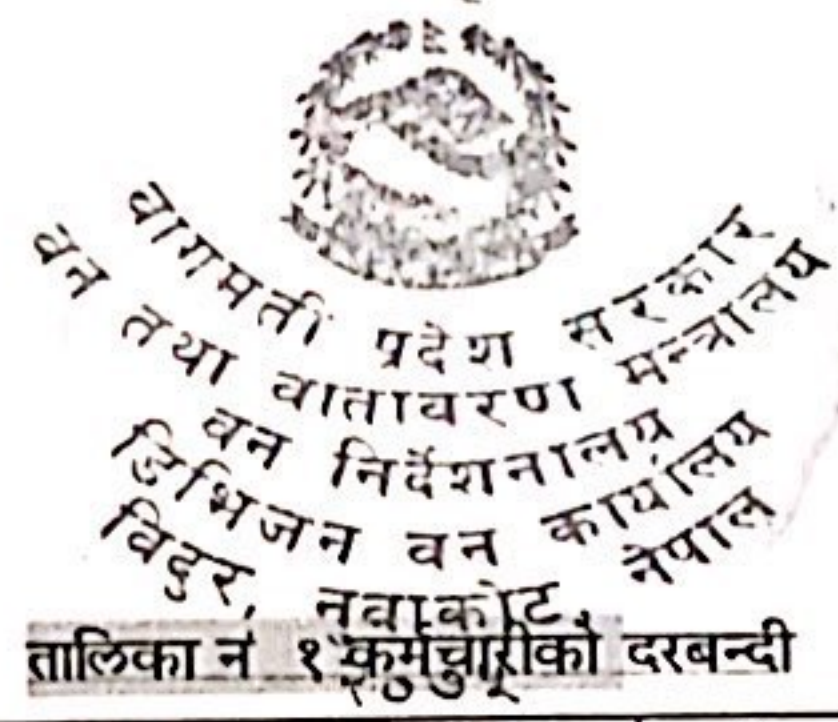 वागमती प्रदेश सरकार
वन तथा वातावरण मन्त्रालय
वन निर्देशनालय
डिभिजन वन कार्यालय
विदुर, नुवाकोट, नेपाल
तालिका नं १ कर्मचारीको दरबन्दी